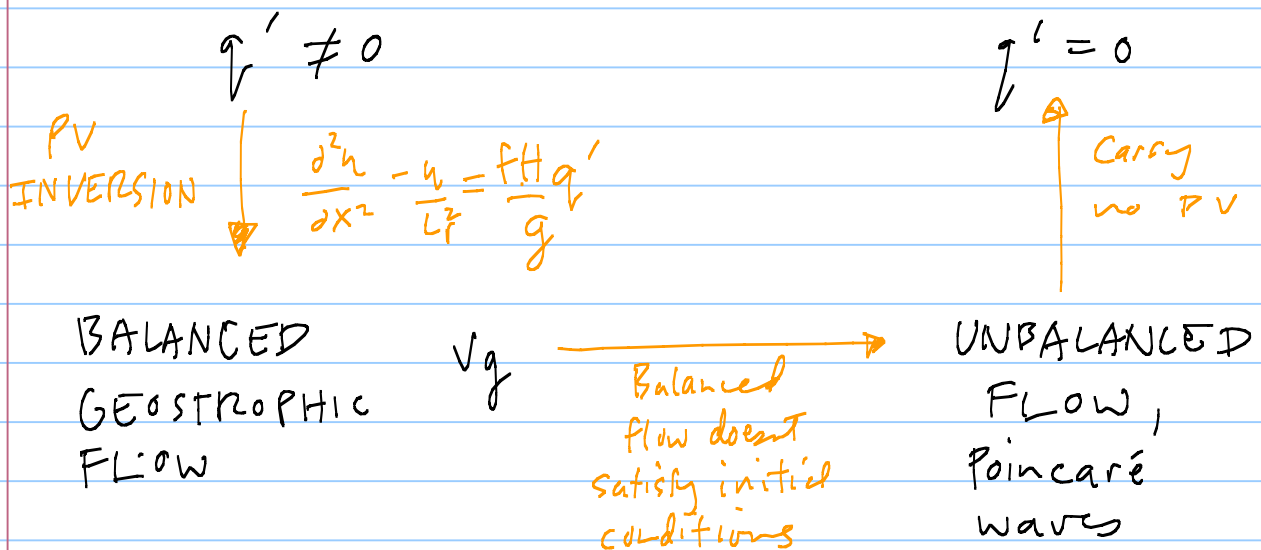 q' ≠ 0
q' = 0
PV
INVERSION
∂²η/∂x² - η/Lr² = fH/g q'
Carry
no PV
BALANCED
GEOSTROPHIC
FLOW
Vg
Balanced
flow doesnt
satisfy initial
conditions
UNBALANCED
FLOW,
Poincaré
waves